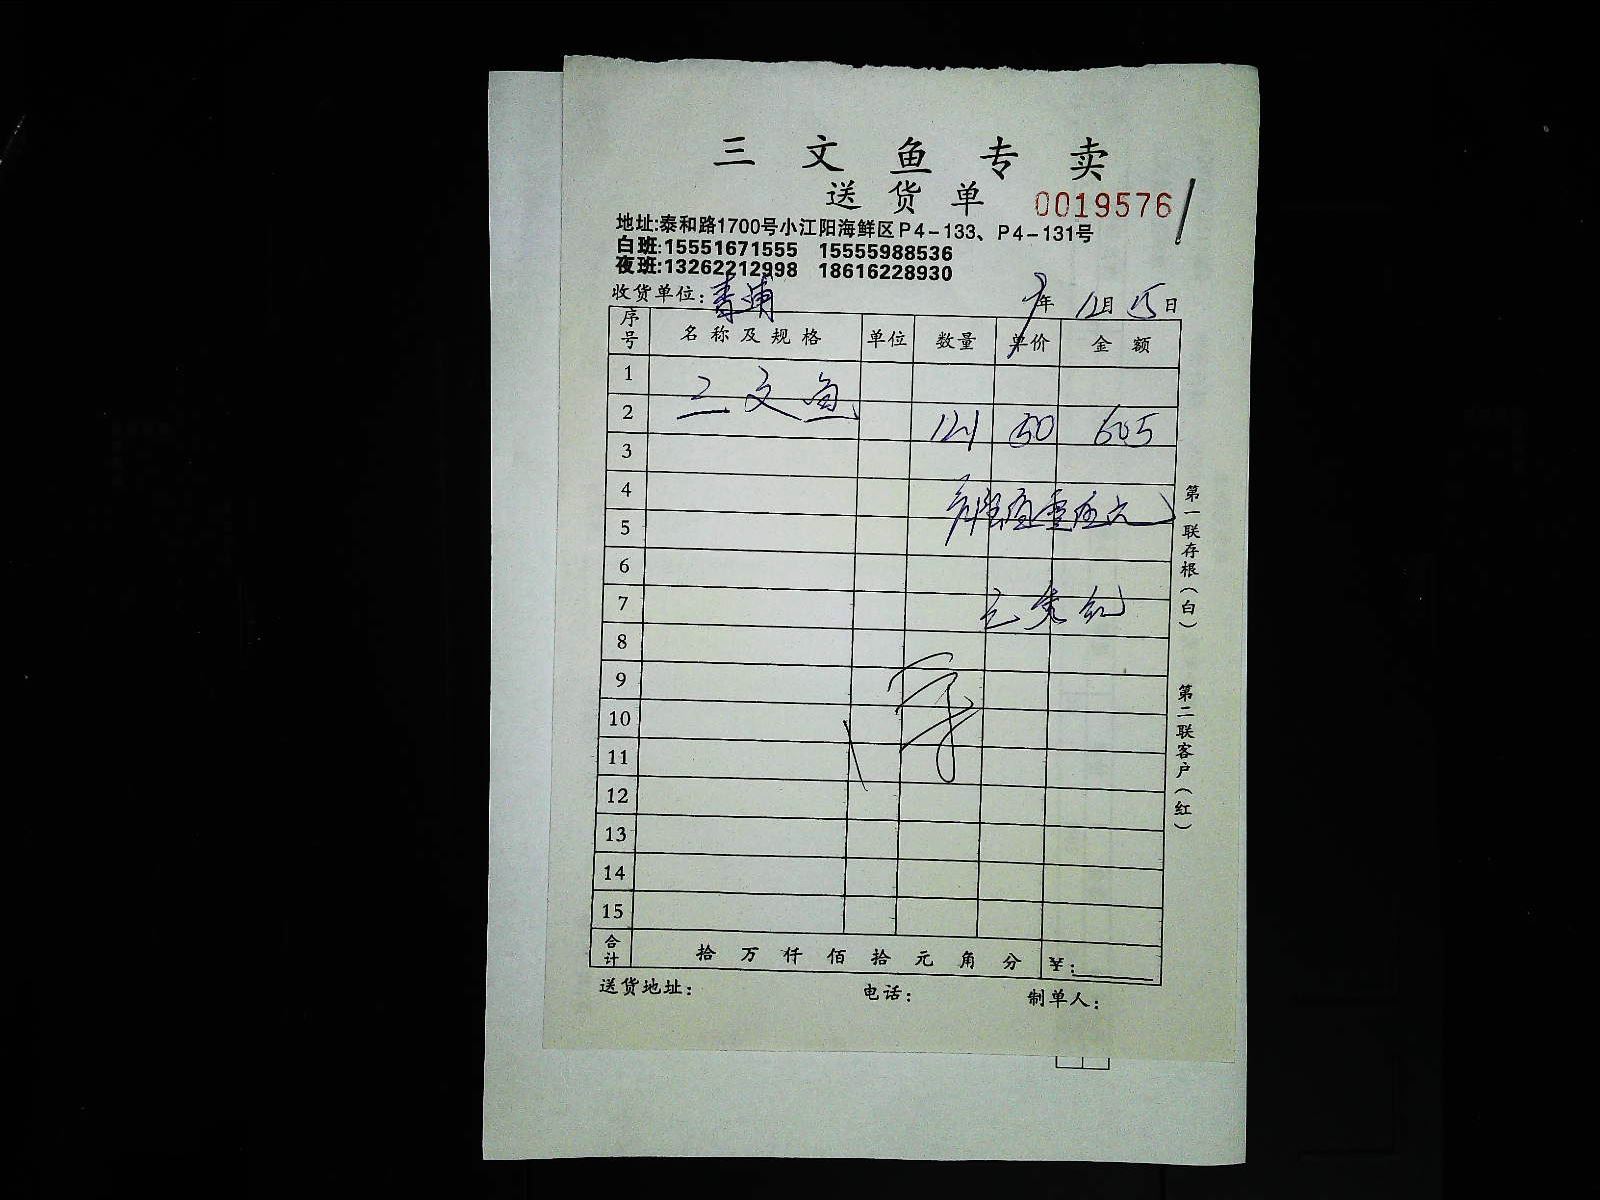 三文鱼专卖
送货单 0019576
地址:泰和路1700号小江阳海鲜区P4-133、P4-131号
白班:15551671555 15555988536
夜班:13262212998 18616228930
收货单位:青浦 年 12月15日
序号 名称及规格 单位 数量 单价 金额
1
三文鱼
2 121 50 605
3
4
5
6
7
8
9
10
11
12
13
14
15
合计 拾万仟佰拾元角分 ¥:
送货地址: 电话: 制单人:
第一联存根(白)
第二联客户(红)